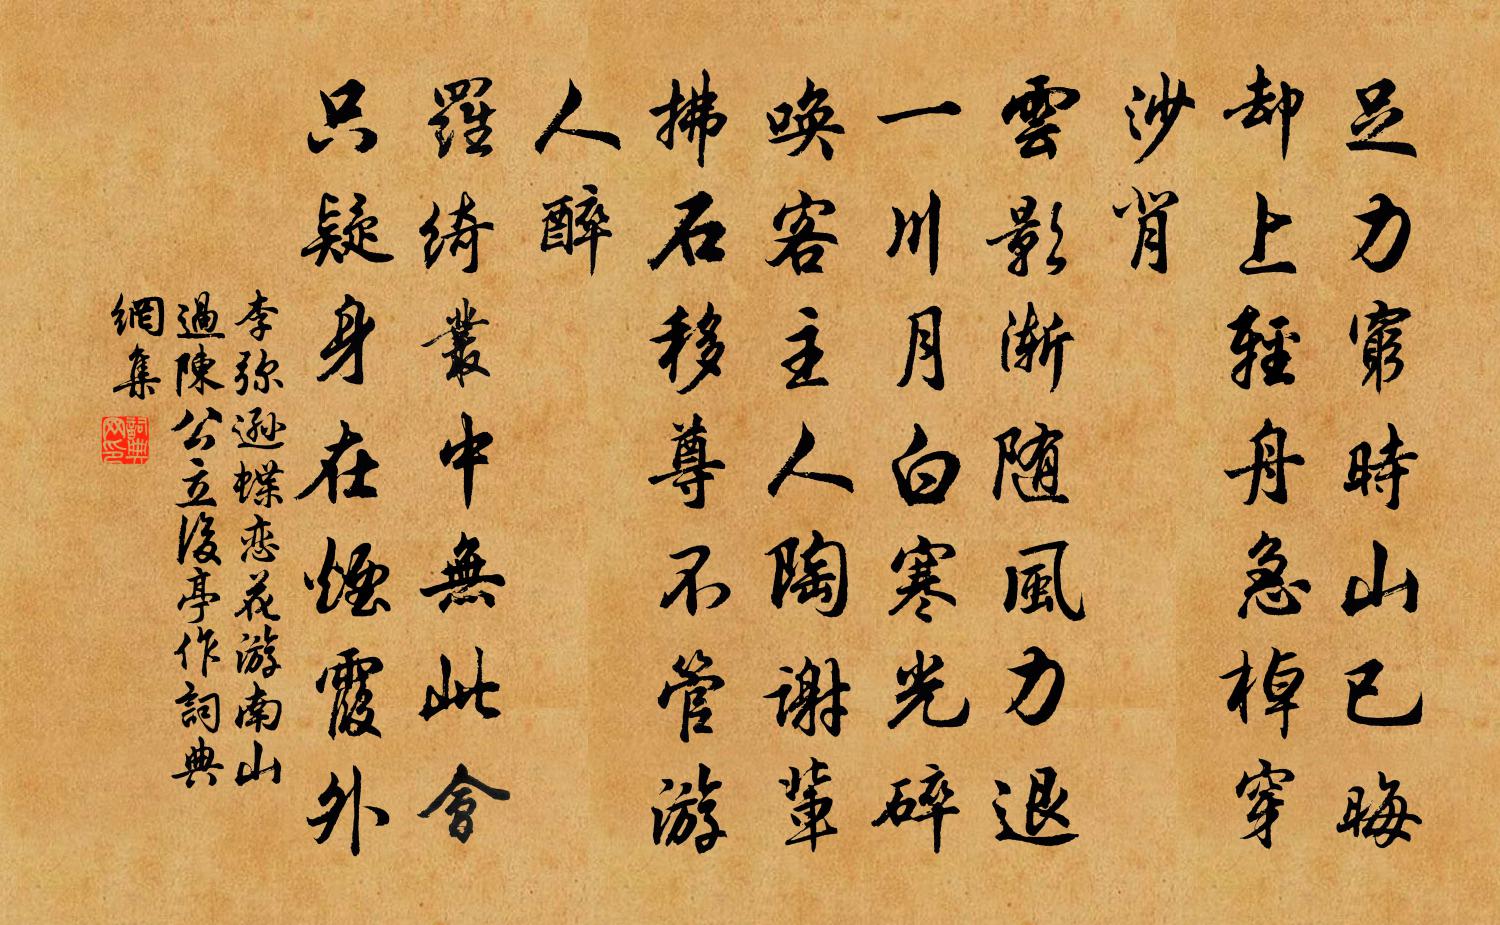 足力窮時山已晦
却上輕舟急棹穿
沙背
雲影漸随風力退
一川月白寒光碎
喚客主人陶謝輩
拂石移尊不管游
人醉
羅綺叢中無此會
只疑身在煙霞外
李弥遜蝶恋花游南山
過陳公立後亭作詞典
網集
詞典網印